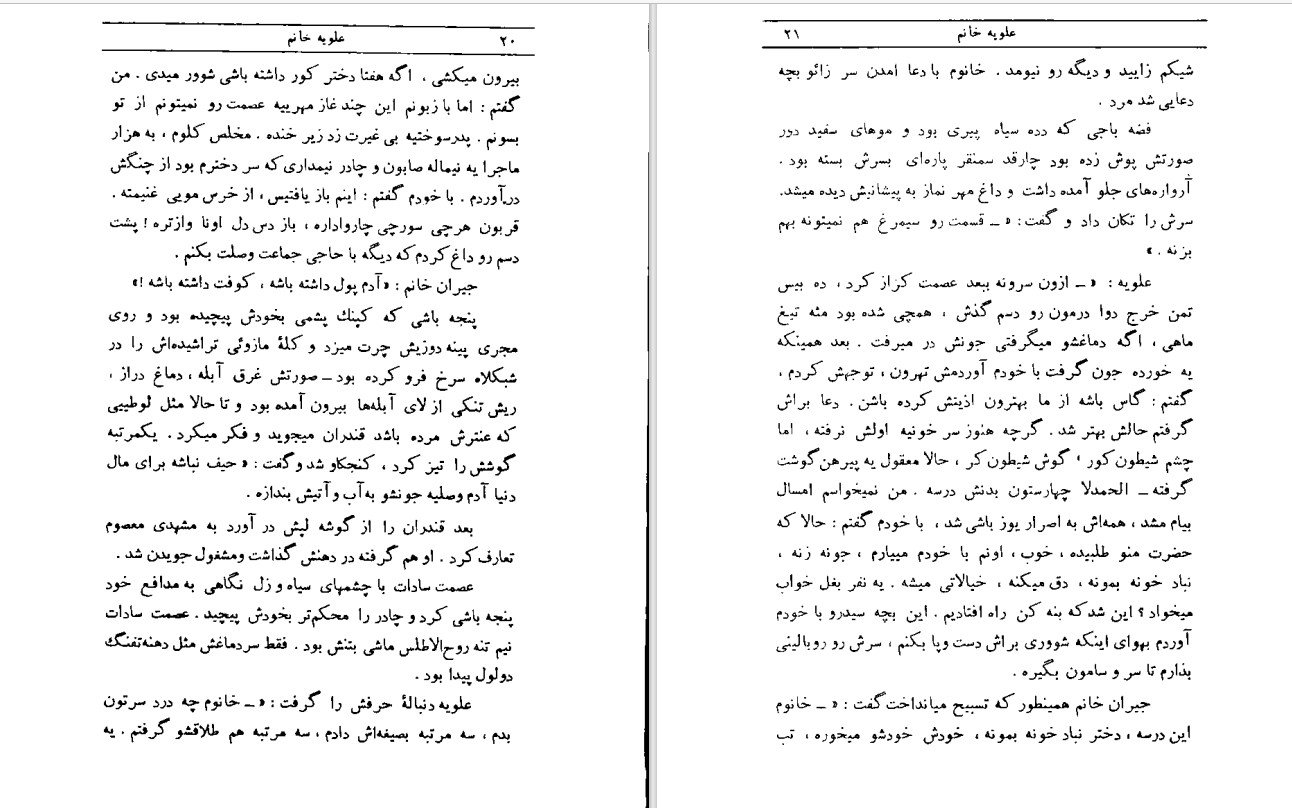 علویه خانم ۲۰
بیرون میکشی ، اگه هفتا دختر کور داشته باشی شوور میدی . من
گفتم : اما با زبونم این چند غاز مهرییه عصمت رو نمیتونم از تو
بسونم . پدرسوختیه بی غیرت زد زیر خنده . مخلص کلوم ، به هزار
ماجرا یه نیماله صابون و چادر نیمداری که سر دخترم بود از چنگش
درآوردم . با خودم گفتم : اینم باز یافتیس ، از خرس مویی غنیمته .
قربون هرچی سورچی چارواداره ، باز دس دل اونا وازتره ! پشت
دسم رو داغ کردم که دیگه با حاجی جماعت وصلت بکنم .
جیران خانم : «آدم پول داشته باشه ، کوفت داشته باشه !»
پنجه باشی که کپنك پشمی بخودش پیچیده بود و روی
مجری پینه دوزیش چرت میزد و کلهٔ مازوئی تراشیده‌اش را در
شبکلاه سرخ فرو کرده بود ــ صورتش غرق آبله ، دماغ دراز ،
ریش تنکی از لای آبله‌ها بیرون آمده بود و تا حالا مثل لوطییی
که عنترش مرده باشد قندران میجوید و فکر میکرد . یکمرتبه
گوشش را تیز کرد ، کنجکاو شد و گفت : « حیف نباشه برای مال
دنیا آدم وصلیه جونشو به آب و آتیش بندازه .
بعد قندران را از گوشه لپش در آورد به مشهدی معصوم
تعارف کرد . او هم گرفته در دهنش گذاشت ومشغول جویدن شد .
عصمت سادات با چشمهای سیاه و زل نگاهی به مدافع خود
پنجه باشی کرد و چادر را محکم‌تر بخودش پیچید . عصمت سادات
نیم تنه روح‌الاطلس ماشی بتنش بود . فقط سردماغش مثل دهنه‌تفنگ
دولول پیدا بود .
علویه دنبالهٔ حرفش را گرفت : « ــ خانوم چه درد سرتون
بدم ، سه مرتبه بصیغه‌اش دادم ، سه مرتبه هم طلاقشو گرفتم . یه
علویه خانم ۲۱
شیکم زایید و دیگه رو نیومد . خانوم با دعا امدن سر زائو بچه
دعایی شد مرد .
فضه باجی که دده سیاه پیری بود و موهای سفید دور
صورتش پوش زده بود چارقد سمنقر پاره‌ای بسرش بسته بود .
آرواره‌های جلو آمده داشت و داغ مهر نماز به پیشانیش دیده میشد.
سرش را تکان داد و گفت: « ــ قسمت رو سیمرغ هم نمیتونه بهم
بزنه . »
علویه : « ــ ازون سرونه ببعد عصمت کزاز کرد ، ده بیس
تمن خرج دوا درمون رو دسم گذش ، همچی شده بود مثه تیغ
ماهی ، اگه دماغشو میگرفتی جونش در میرفت . بعد همینکه
یه خورده جون گرفت با خودم آوردمش تهرون ، توجهش کردم ،
گفتم : گاس باشه از ما بهترون اذیتش کرده باشن . دعا براش
گرفتم حالش بهتر شد . گرچه هنوز سر خونیه اولش نرفته ، اما
چشم شیطون کور ، گوش شیطون کر ، حالا معقول یه پیرهن گوشت
گرفته ــ الحمدلا چهارستون بدنش درسه . من نمیخواسم امسال
بیام مشد ، همه‌اش به اصرار یوز باشی شد ، با خودم گفتم : حالا که
حضرت منو طلبیده ، خوب ، اونم با خودم مییارم ، جونه زنه ،
نباد خونه بمونه ، دق میکنه ، خیالاتی میشه . یه نفر بغل خواب
میخواد ؟ این شد که بنه کن راه افتادیم . این بچه سیدرو با خودم
آوردم بهوای اینکه شووری براش دست وپا بکنم ، سرش رو رو بالینی
بذارم تا سر و سامون بگیره .
جیران خانم همینطور که تسبیح میانداخت گفت : « ــ خانوم
این درسه ، دختر نباد خونه بمونه ، خودش خودشو میخوره ، تب